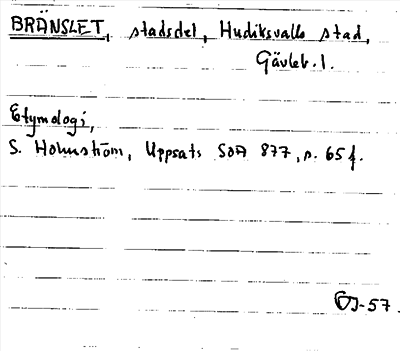 BRÄNSLET, stadsdel, Hudiksvalls stad,
Gävleb. l.
Etymologi,
S. Holmström, Uppsats SOA 877, s. 65 f.
OJ-57